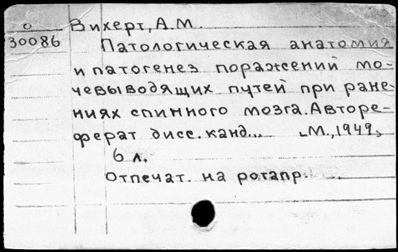 о Вихерт, А.М.
30086 Патологическая анатомия
и патогенез поражений мо-
чевыводящих путей при ране-
ниях спинного мозга. Авторе-
ферат дисс. канд... М., 1949,
6 л.
Отпечат. на ротапр.